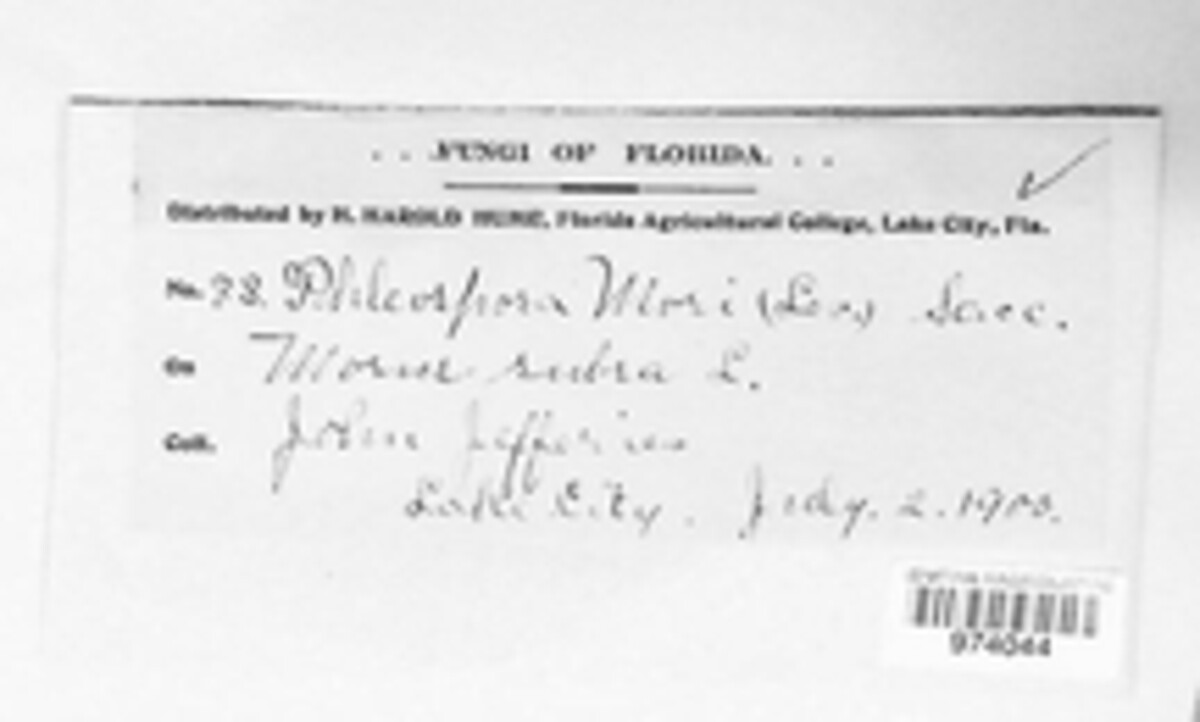 . . .FUNGI OF FLORIDA. . .
Distributed by H. HAROLD HUME, Florida Agricultural College, Lake City, Fla.
No. 98. Phleospora Mori (Lev) Sacc.
On Morus rubra L.
Coll. John Jefferies
Lake City. July. 2. 1900.
974044